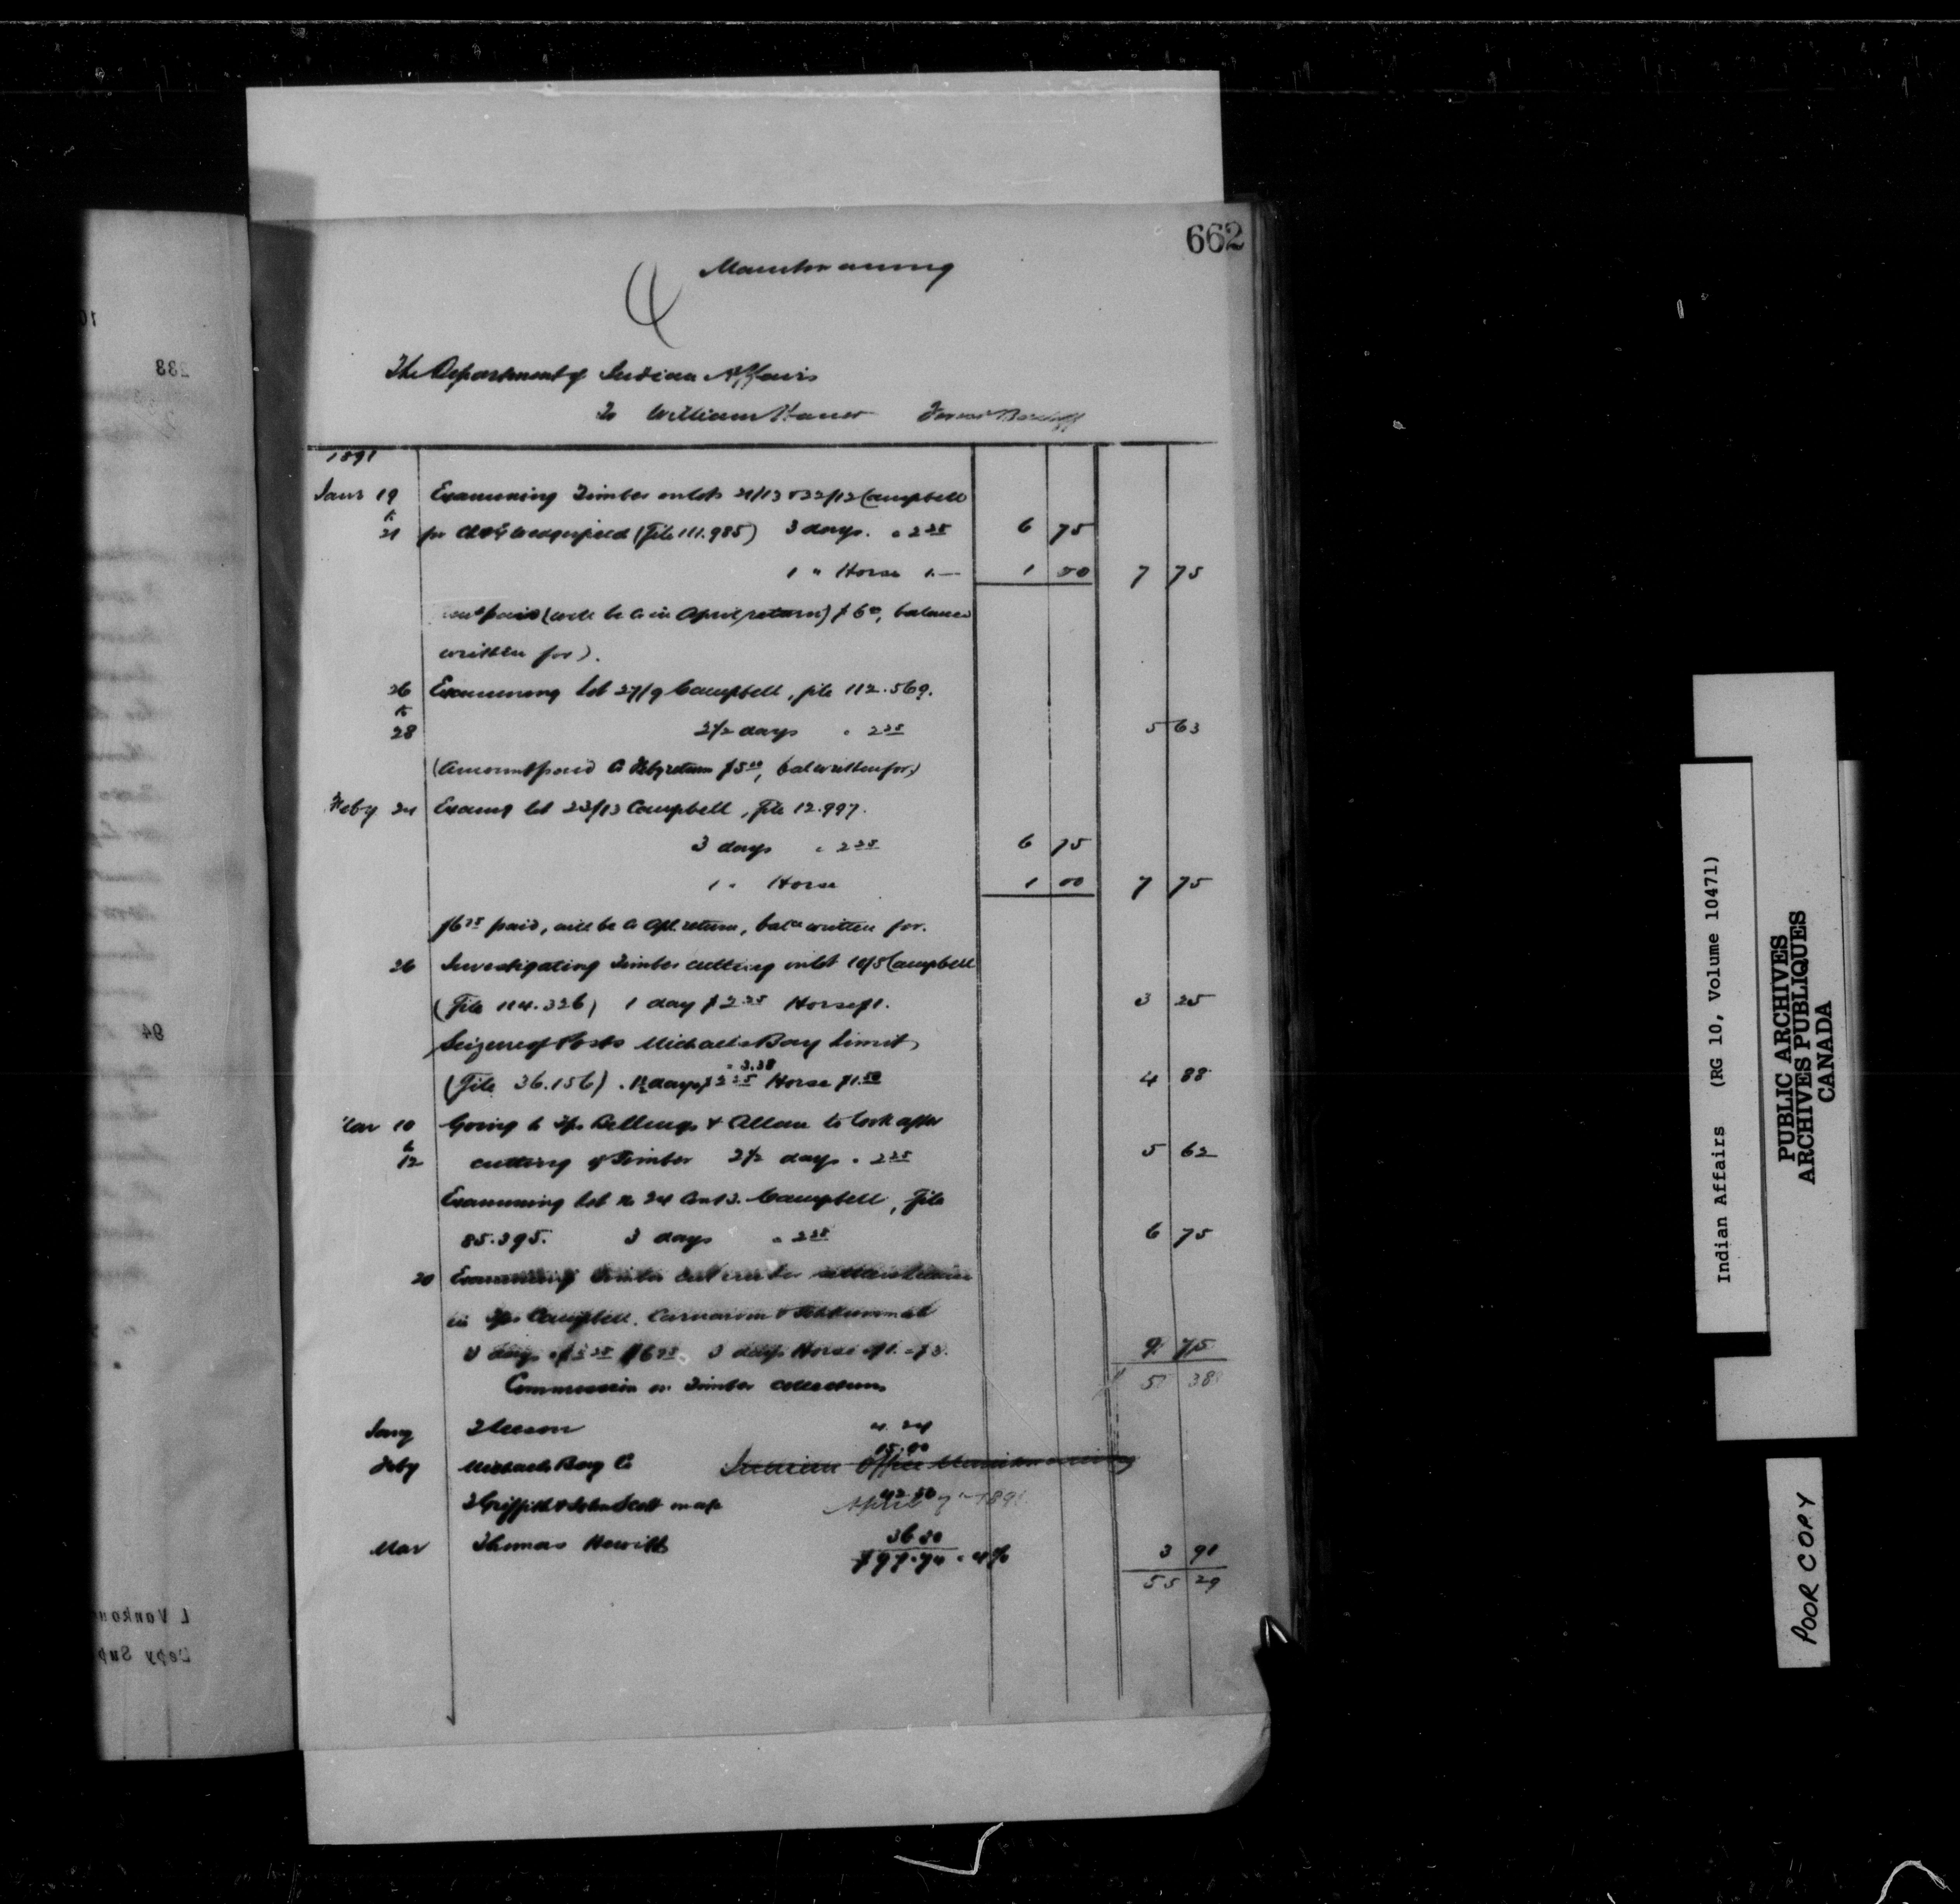 662
Manitowaning
The Department of Indian Affairs
To William Forest Bailiff
1891
Jany 19 Examining Timber on lots 21/13 & 22/12 Campbell
to
21 for (File 111.985) 3 days. " 2 25 6 75
1 " Horse 1.— 1 00 7 75
paid (will be in April return) $6 00, balance
written for).
26 Examining lot 27/9 Campbell, file 112.569.
to
28 2 1/2 days " 2 25 5 63
(Amount paid Feby return $5 00, bal written for)
Feby 24 Examg lot 23/13 Campbell, File 12.997.
3 days " 2 25 6 75
1 " Horse 1 00 7 75
$6 25 paid, will be Apl. return, balce written for.
26 Investigating Timber cutting on lot 10/5 Campbell
(File 114.326) 1 day $2 25 Horse $1. 3 25
Seizure of Posts Michaels Bay Limit
= 3.38
(File 36.156). 1 1/2 days $2 25 Horse $1.50 4 88
Mar 10 Going to Tps Billings & Allan to look after
to
12 cutting of Timber 2 1/2 days " 2 25 5 62
Examining lot No 24 Con 13. Campbell, File
85.395. 3 days " 2 25 6 75
20 Examining Timber cut under settlers licence
in Tps Campbell, Carnarvon & Tehkummah
3 days $2 25 $6 75 3 days Horse $1. = $3. 9 75
Commission on Timber collections 51 38
Jany Gleeson 4.24
15.00
Feby Michaels Bay Co Indian Office Manitowaning
Griffith & John Scott 42.50
April 7th 1891
Mar Thomas Hewitt 36 00
$97.74 " 4% 3 91
55 29
Indian Affairs (RG 10, Volume 10471)
PUBLIC ARCHIVES
ARCHIVES PUBLIQUES
CANADA
POOR COPY